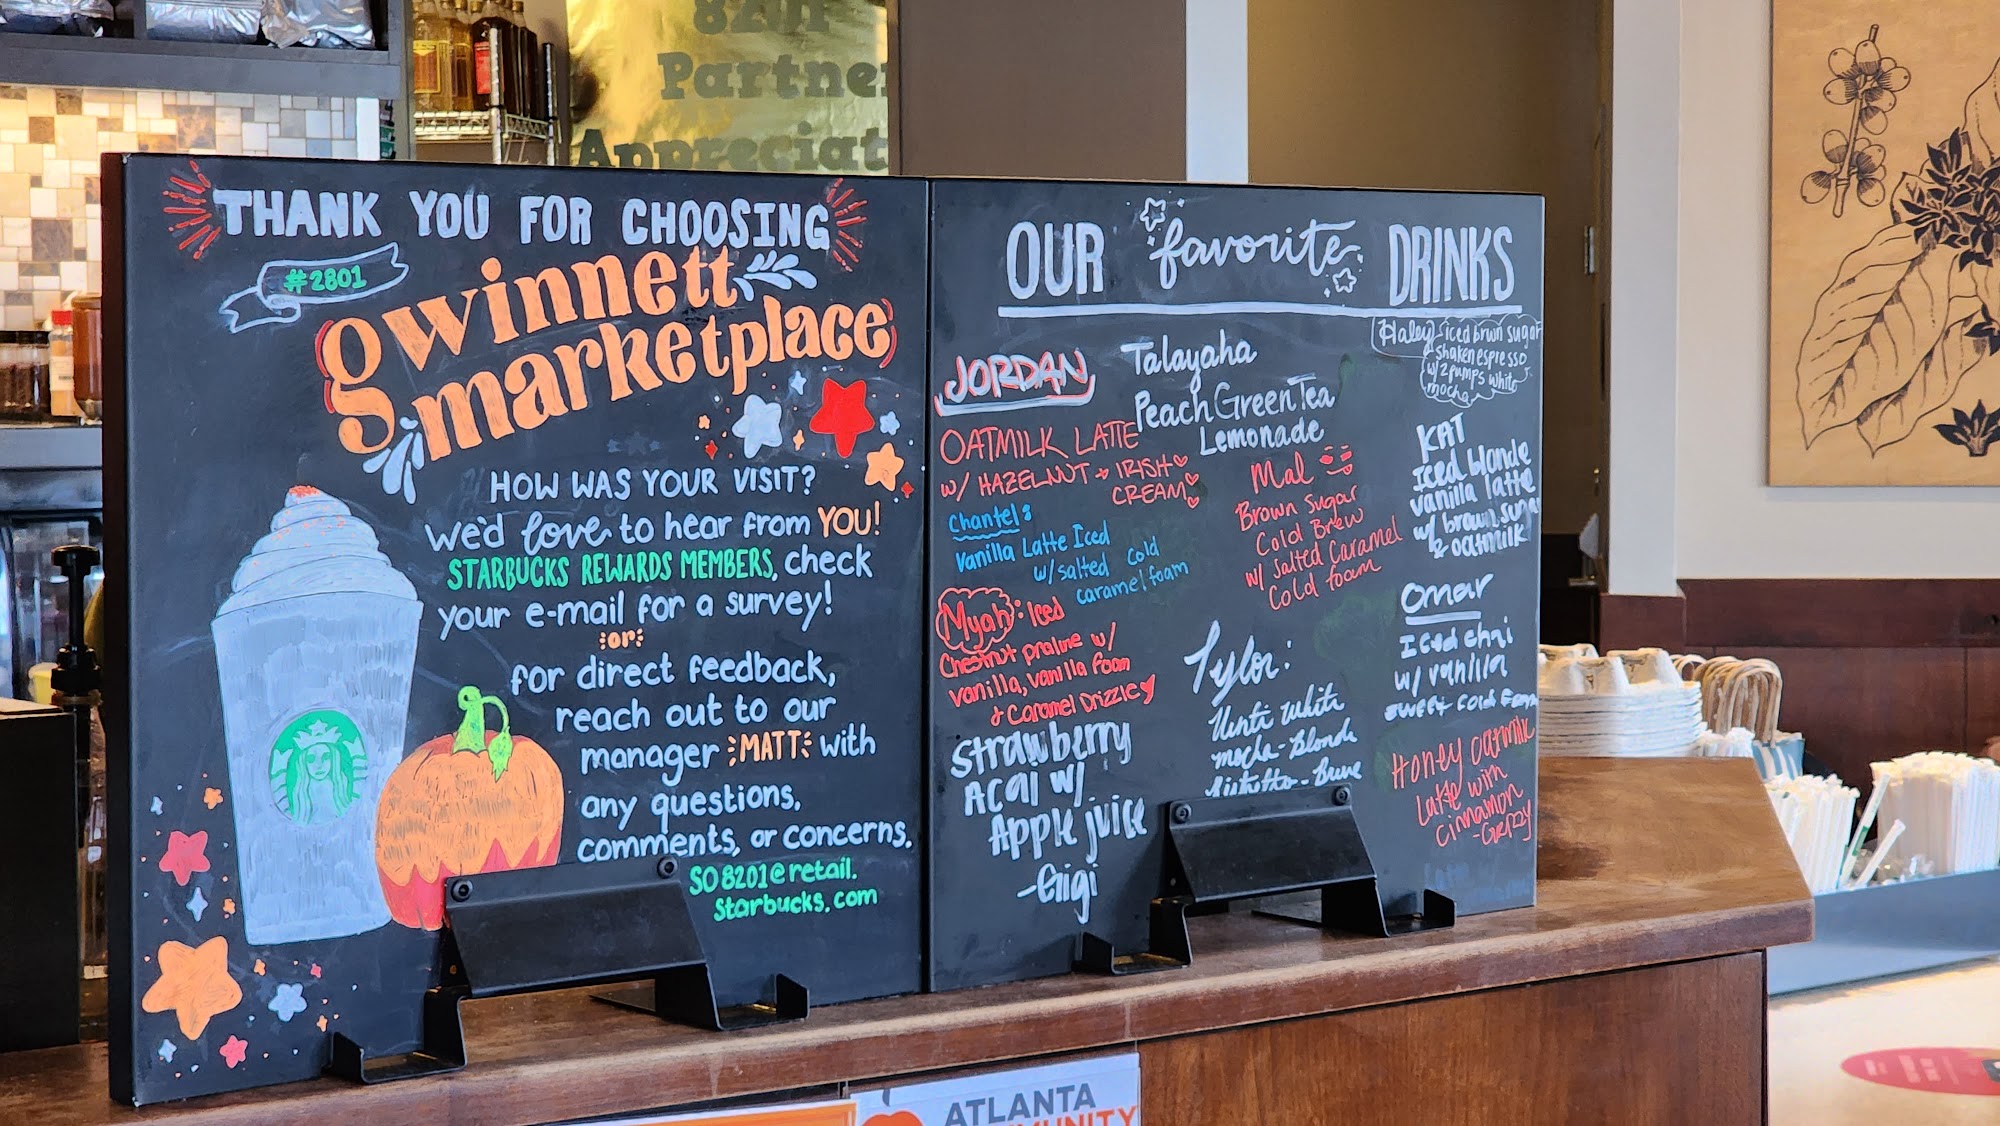 8201
Partner
Appreciat
THANK YOU FOR CHOOSING
#2801
gwinnett
marketplace
HOW WAS YOUR VISIT?
we'd love to hear from YOU!
STARBUCKS REWARDS MEMBERS, check
your e-mail for a survey!
or
for direct feedback,
reach out to our
manager MATT with
any questions,
comments, or concerns.
SO8201@retail.
starbucks.com
OUR favorite DRINKS
JORDAN
OATMILK LATTE
w/ HAZELNUT + IRISH
CREAM
Chantel:
Vanilla Latte Iced
w/salted cold
caramel foam
Myah: Iced
Chestnut praline w/
vanilla, vanilla foam
+ Caramel Drizzle
Strawberry
Acai w/
Apple juice
-Gigi
Talayaha
Peach Green Tea
Lemonade
Mal
Brown Sugar
Cold Brew
w/ salted Caramel
Cold foam
Tyler:
white
mocha-Blonde
Haley-iced brwn sugar
shaken espresso
w/2 pumps white
mocha
KAT
Iced blonde
vanilla latte
w/ brown sugar
& oatmilk
Omar
Iced chai
w/ vanilla
sweet cold foam
Honey oatmilk
Latte with
cinnamon
ATLANTA